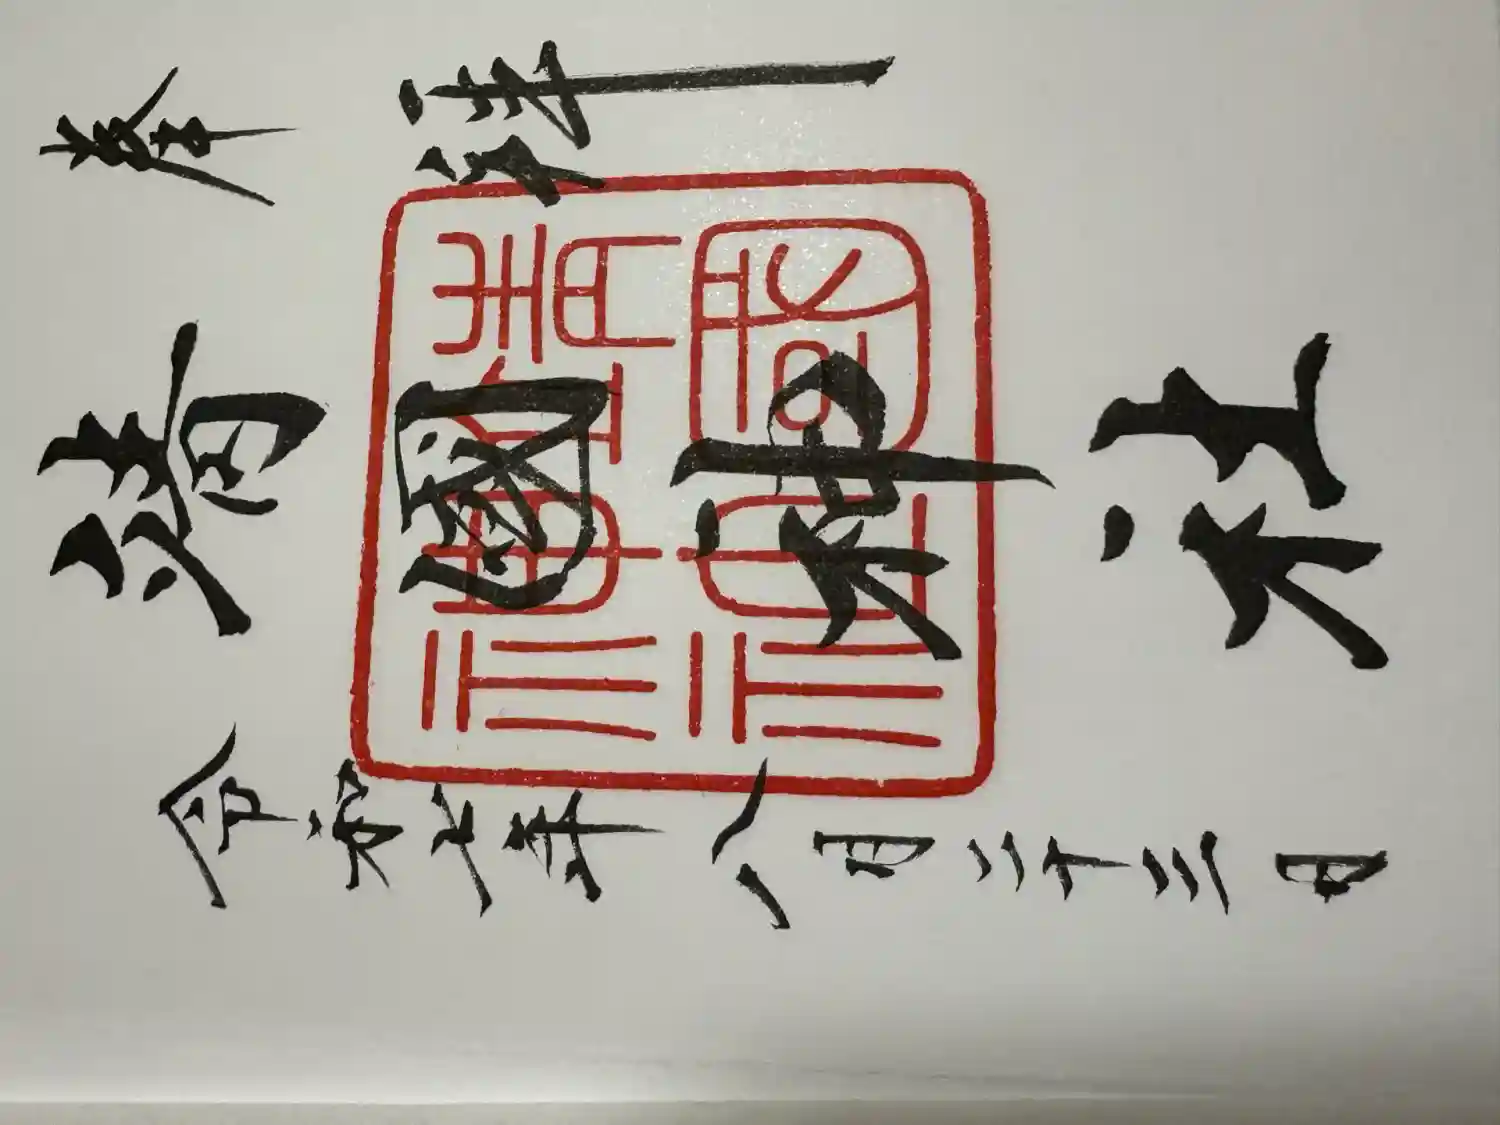 奉拝
靖國神社
令和七年八月二十三日
靖國
神社